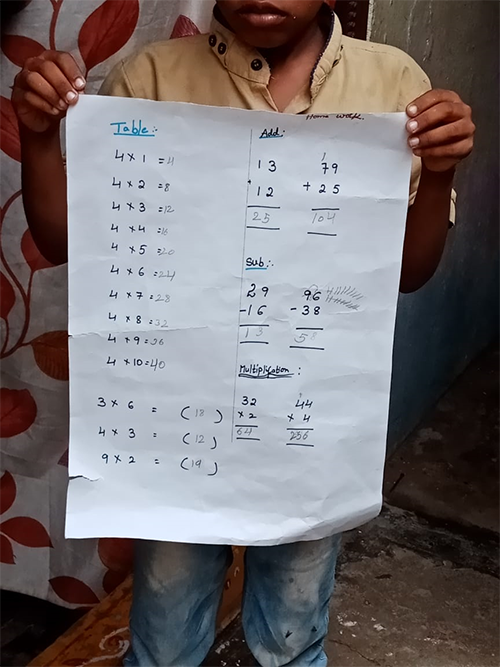 Home work.
Table:-
4 × 1 = 4
4 × 2 = 8
4 × 3 = 12
4 × 4 = 16
4 × 5 = 20
4 × 6 = 24
4 × 7 = 28
4 × 8 = 32
4 × 9 = 36
4 × 10 = 40
3 × 6 = (18)
4 × 3 = (12)
9 × 2 = (19)
Add:-
13
+ 12
25
1
79
+ 25
104
Sub:-
29
- 16
13
96
- 38
58
Multiplication:
32
× 2
64
1
44
× 4
256